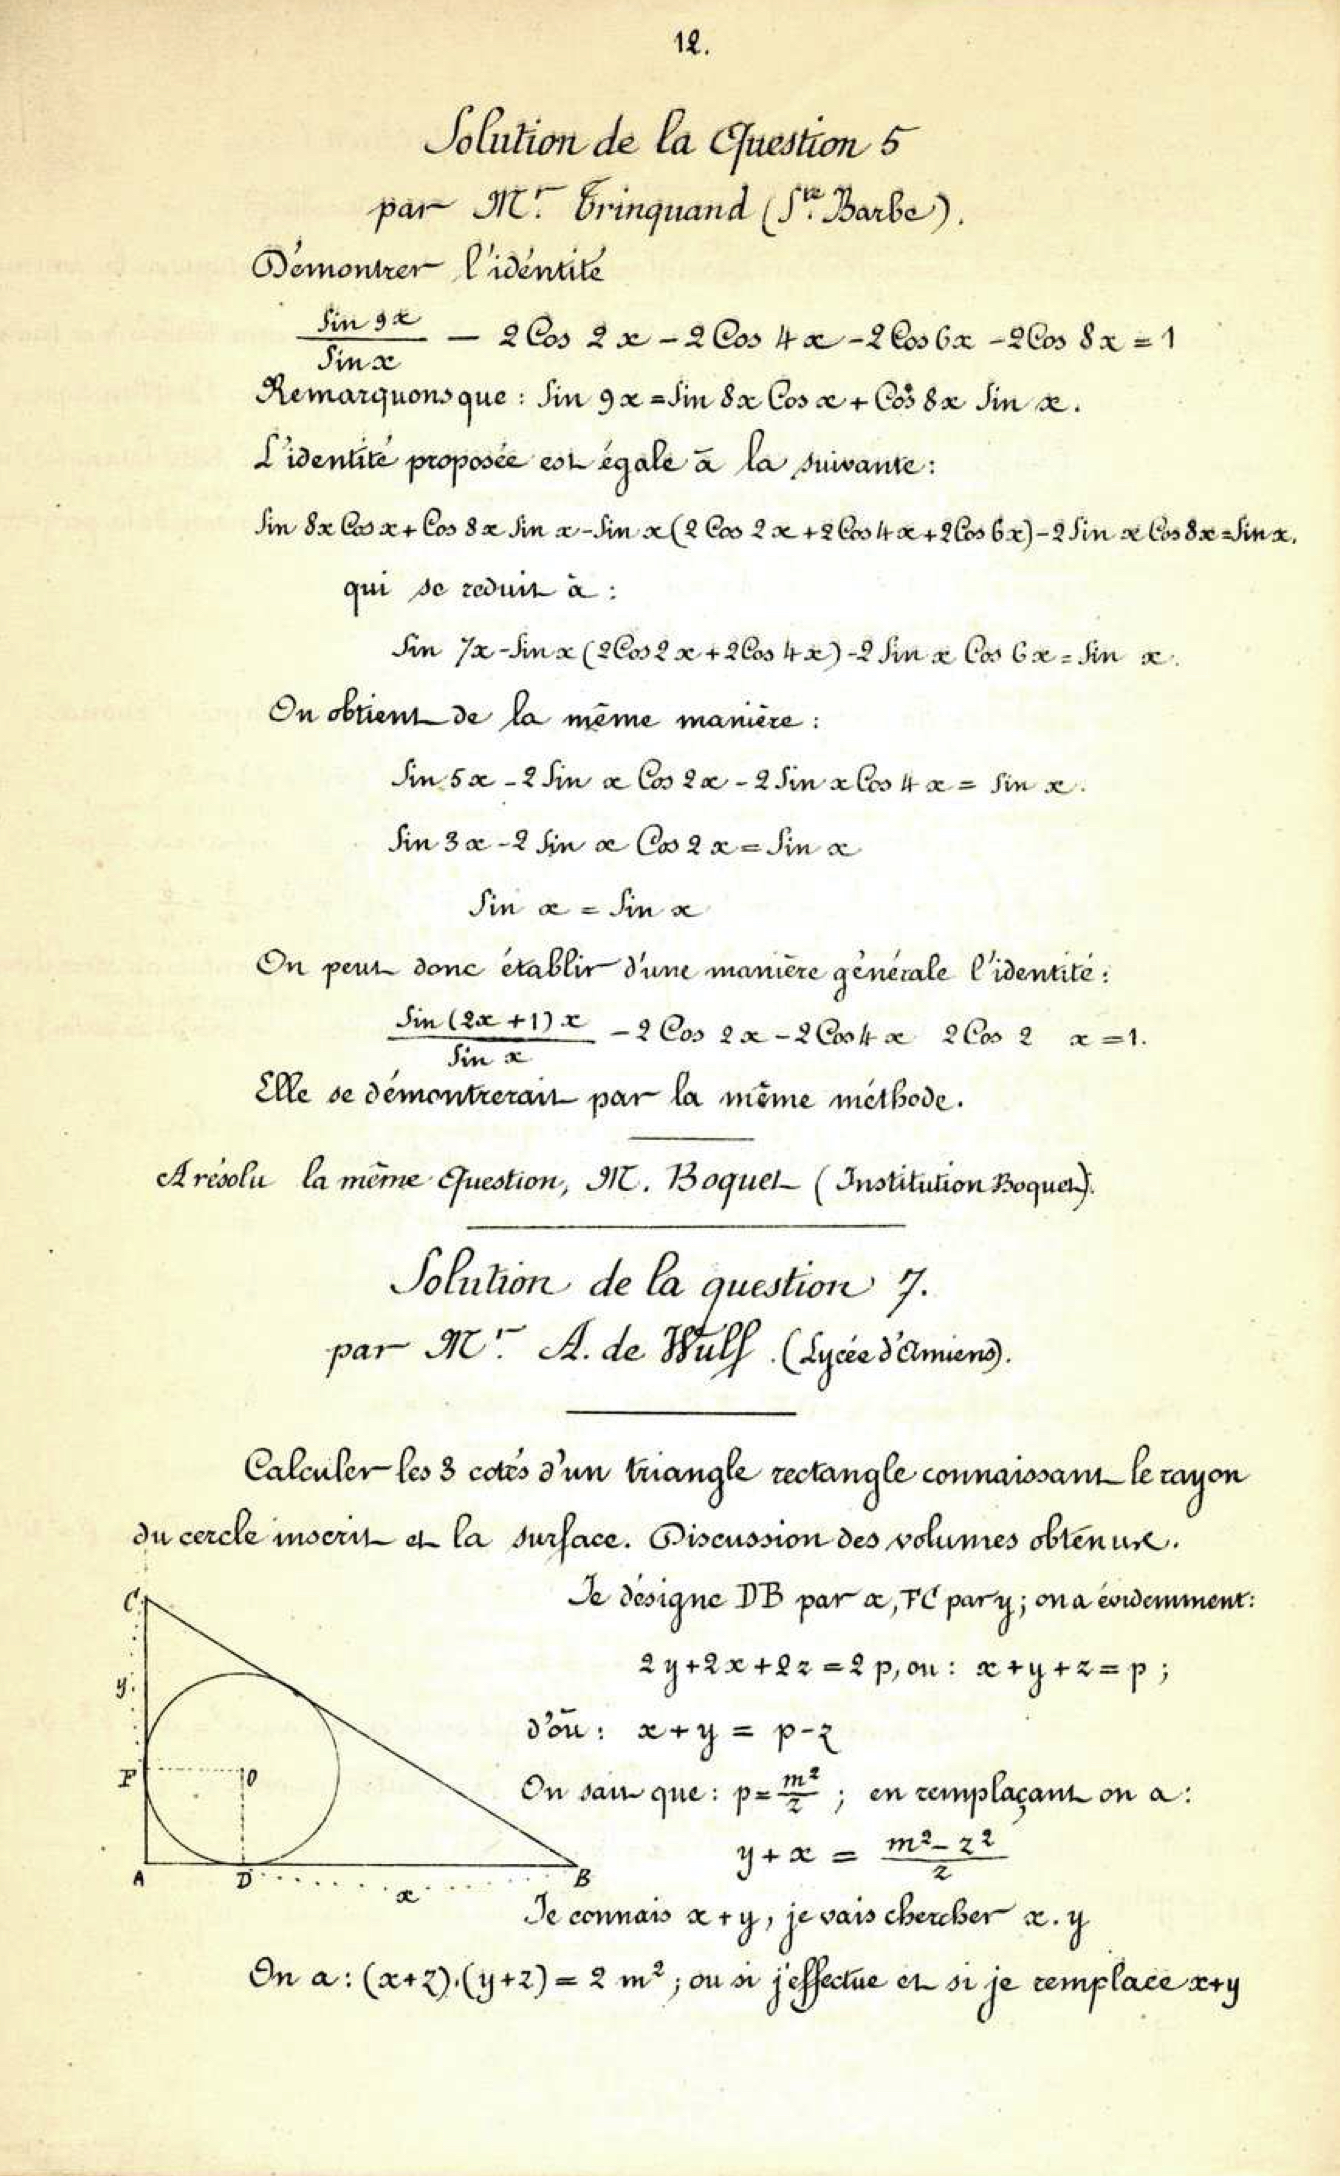 12.
Solution de la Question 5
par Mr. Trinquand (Ste. Barbe).
Démontrer l'identité
Sin 9x / Sin x — 2 Cos 2x - 2 Cos 4x - 2 Cos 6x - 2 Cos 8x = 1
Remarquons que : Sin 9x = Sin 8x Cos x + Cos 8x Sin x.
L'identité proposée est égale à la suivante :
Sin 8x Cos x + Cos 8x Sin x - Sin x (2 Cos 2x + 2 Cos 4x + 2 Cos 6x) - 2 Sin x Cos 8x = Sin x.
qui se reduit à :
Sin 7x - Sin x (2 Cos 2x + 2 Cos 4x) - 2 Sin x Cos 6x = Sin x.
On obtient de la même manière :
Sin 5x - 2 Sin x Cos 2x - 2 Sin x Cos 4x = Sin x.
Sin 3x - 2 Sin x Cos 2x = Sin x
Sin x = Sin x
On peut donc établir d'une manière générale l'identité :
Sin (2x + 1) x / Sin x - 2 Cos 2x - 2 Cos 4x 2 Cos 2 x = 1.
Elle se démontrerait par la même méthode.
A résolu la même Question, M. Boquet (Institution Boquet).
Solution de la question 7.
par Mr. A. de Wulf. (Lycée d'Amiens).
Calculer les 3 cotés d'un triangle rectangle connaissant le rayon
du cercle inscrit et la surface. Discussion des volumes obtenus.
Je désigne DB par x, FC par y ; on a évidemment :
2y + 2x + 2z = 2p, ou : x + y + z = p ;
d'où : x + y = p - z
On sait que : p = m²/z ; en remplaçant on a :
y + x = m² - z² / z
C
y
F
O
A
D
x
B
Je connais x + y, je vais chercher x . y
On a : (x + z) . (y + z) = 2 m² ; ou si j'effectue et si je remplace x + y